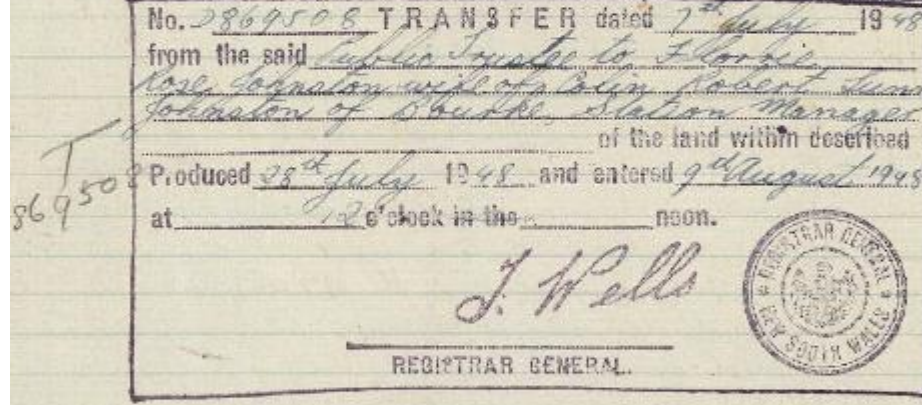 No. 2869508 TRANSFER dated 7th July 1948
from the said Public Trustee to Florrie
Rose Johnston wife of Colin Robert
Johnston of Bourke, Station Manager
of the land within described
Produced 28th July 1948 and entered 9th August 1948
at 12 o'clock in the noon.
T
869508
J. Wells
REGISTRAR GENERAL.
REGISTRAR GENERAL
NEW SOUTH WALES